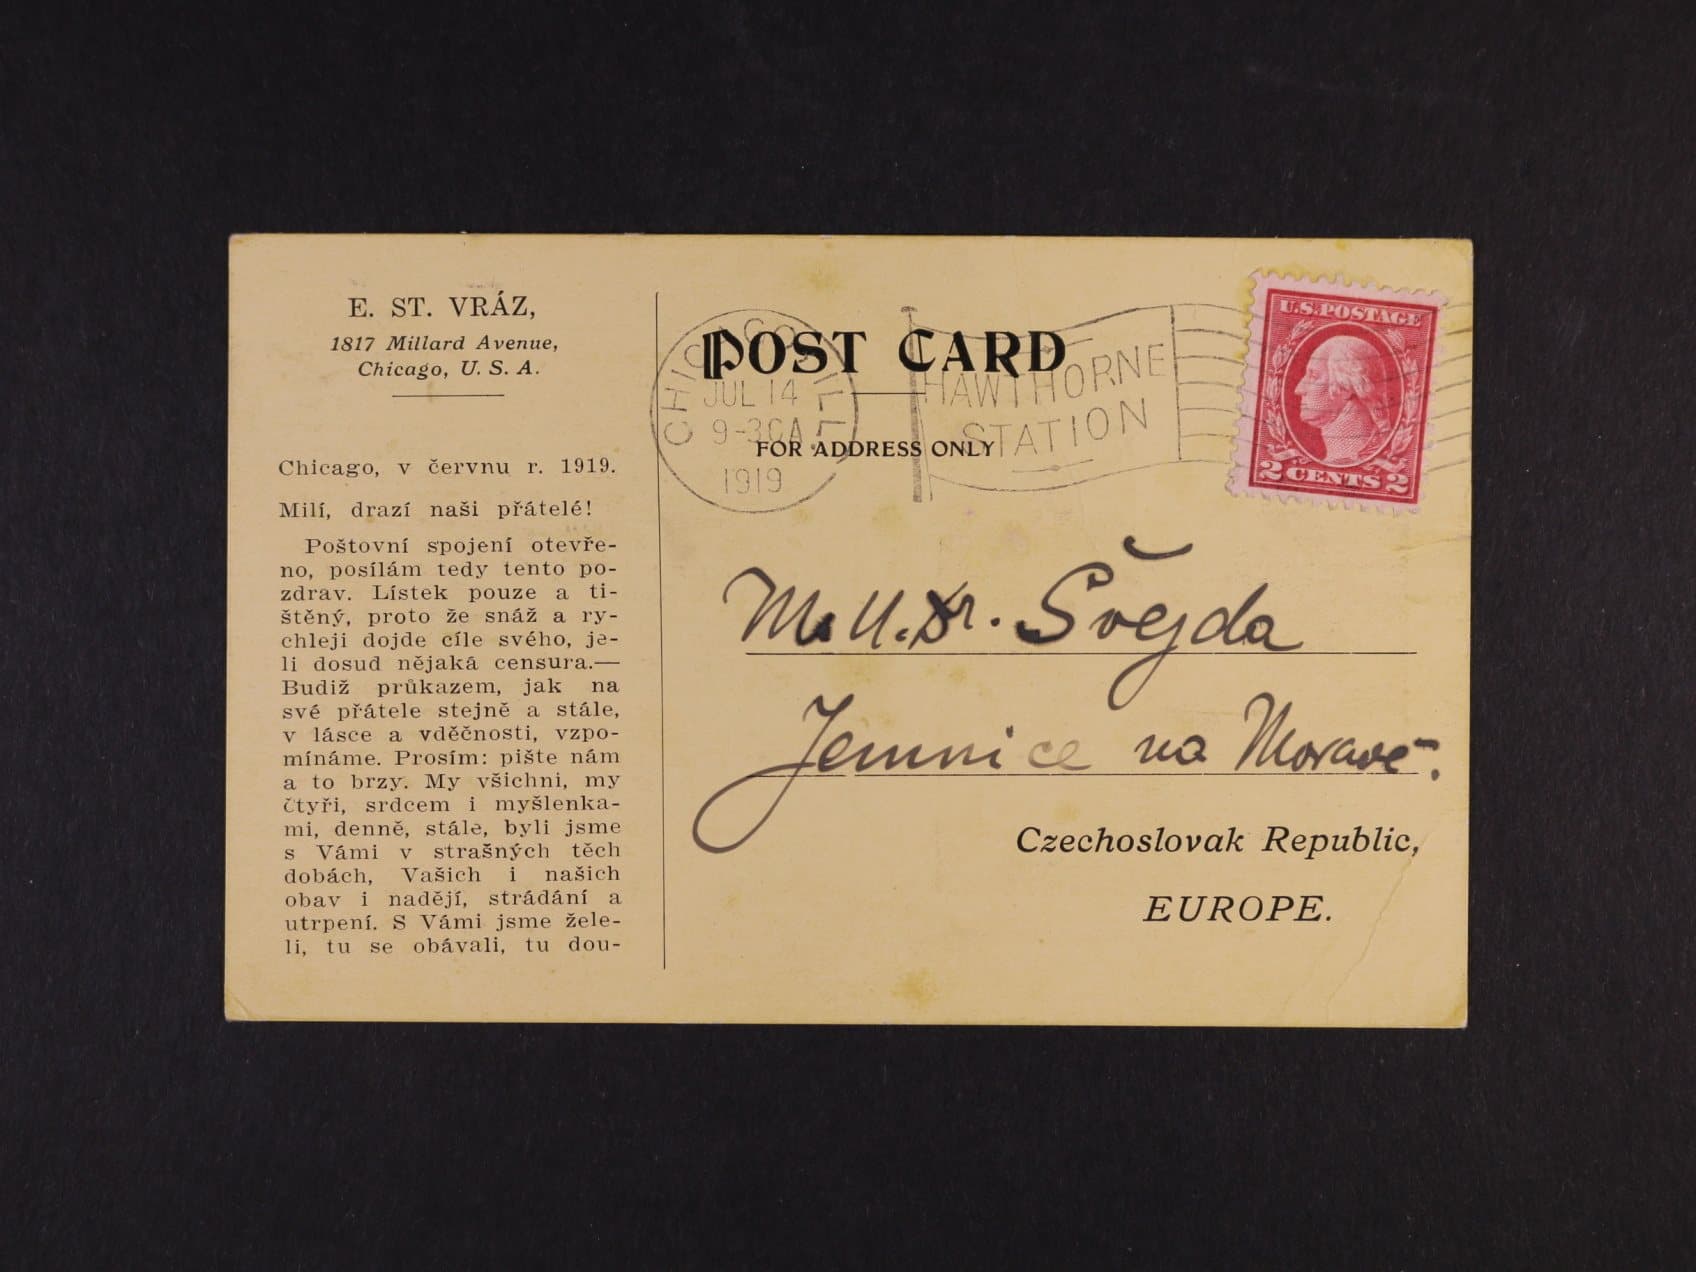 E. ST. VRÁZ,
1817 Millard Avenue,
Chicago, U. S. A.
Chicago, v červnu r. 1919.
Milí, drazí naši přátelé!
Poštovní spojení otevře-
no, posílám tedy tento po-
zdrav. Lístek pouze a ti-
štěný, proto že snáž a ry-
chleji dojde cíle svého, je-
li dosud nějaká censura.—
Budiž průkazem, jak na
své přátele stejně a stále,
v lásce a vděčnosti, vzpo-
mínáme. Prosím: pište nám
a to brzy. My všichni, my
čtyři, srdcem i myšlenka-
mi, denně, stále, byli jsme
s Vámi v strašných těch
dobách, Vašich i našich
obav i nadějí, strádání a
utrpení. S Vámi jsme žele-
li, tu se obávali, tu dou-
POST CARD
FOR ADDRESS ONLY
CHICAGO, ILL.
JUL 14
9-30A
1919
HAWTHORNE
STATION
U.S. POSTAGE
2 CENTS 2
M.U.Dr. Švejda
Jemnice na Moravě.
Czechoslovak Republic,
EUROPE.